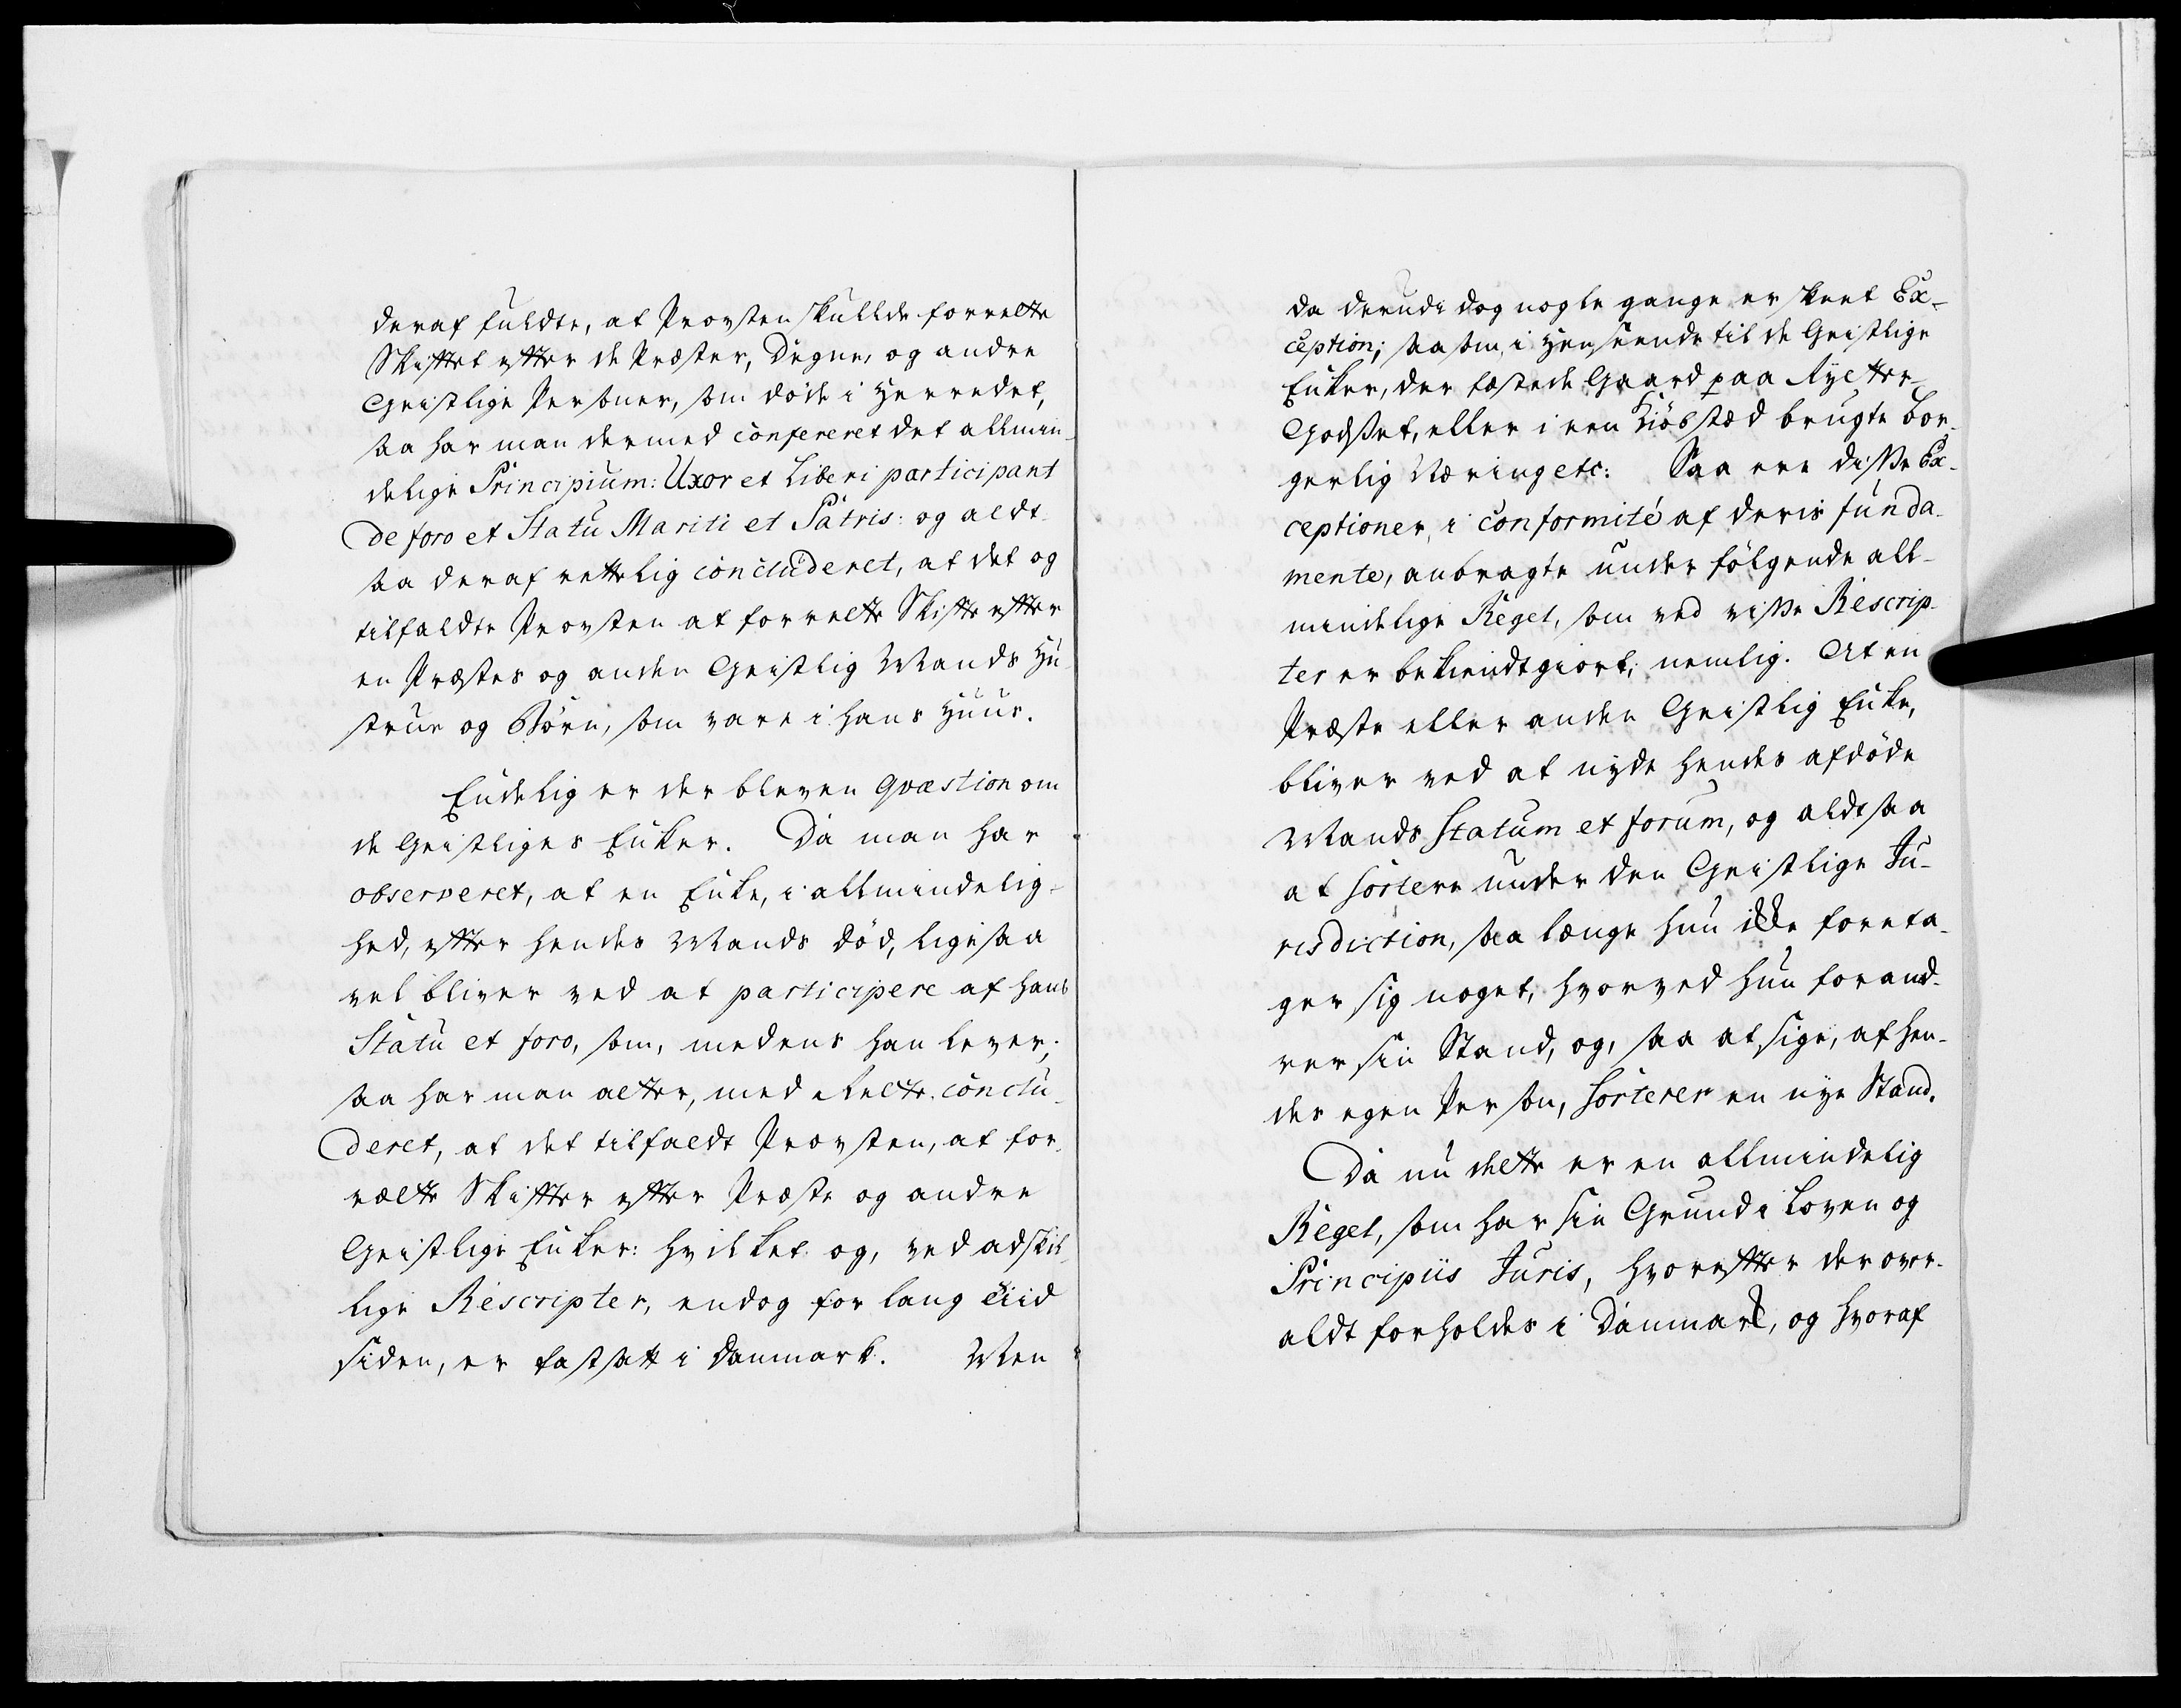 deraf fuldte, at Provsten skullde forrette
Skiftet efter de Præster, Degne, og andre
Geistlige Personer, som döde i Herredet,
saa har man dermed confereret det allmin-
delige Principium: Uxor et Liberi participant
de foro et Statu Mariti et Patris: og aldt-
saa deraf rettelig concluderet, at det og
tilfaldte Provsten at forrette Skifte efter
en Præstes og anden Geistlig Mands Hu-
strue og Börn, som vare i hans Huus.
Endelig er der bleven Qvæstion om
de Geistliges Enker. Da man har
observeret, at en Enke, i allmindelig-
hed, efter hendes Mands Död, ligesaa
vel bliver ved at participere af hans
Statu et foro, som, medens han lever;
saa har man atter, med Rette conclu-
deret, at det tilfaldt Provsten, at for-
rætte Skifter efter Præste og andre
Geistlige Enker: hvilket og, ved adskil-
lige Rescripter, endog for lang Tiid
siden, er fastsatt i Danmark. Men
da derudi dog nogle gange er skeet Ex-
ception; saasom, i Henseende til de Geistlige
Enker, der fæstede Gaard paa Rytter-
Godset, eller i een Kiöbstæd brugte bor-
gerlig Næring etc: Saa ere disse Ex-
ceptioner, i conformité af deris funda-
mente, anbragte under fölgende all-
mindelige Regel, som ved visse Rescrip-
ter er bekiendtgiort; nemlig. At en
Præste eller anden Geistlig Enke,
bliver ved at nyde hendes afdöde
Mands Statum et forum, og aldtsaa
at sortere under den Geistlige Ju-
risdiction, saa længe hun ikke foreta-
ger sig noget, hvorved hun forand-
rer sin Stand, og, saa at sige, af hen-
des egen Person, sorterer en nye Stand.
Da nu dette er en allmindelig
Regel, som har sin Grund i Loven og
Principiis Juris, hvorefter der over-
aldt forholdes i Danmark, og hvoraf